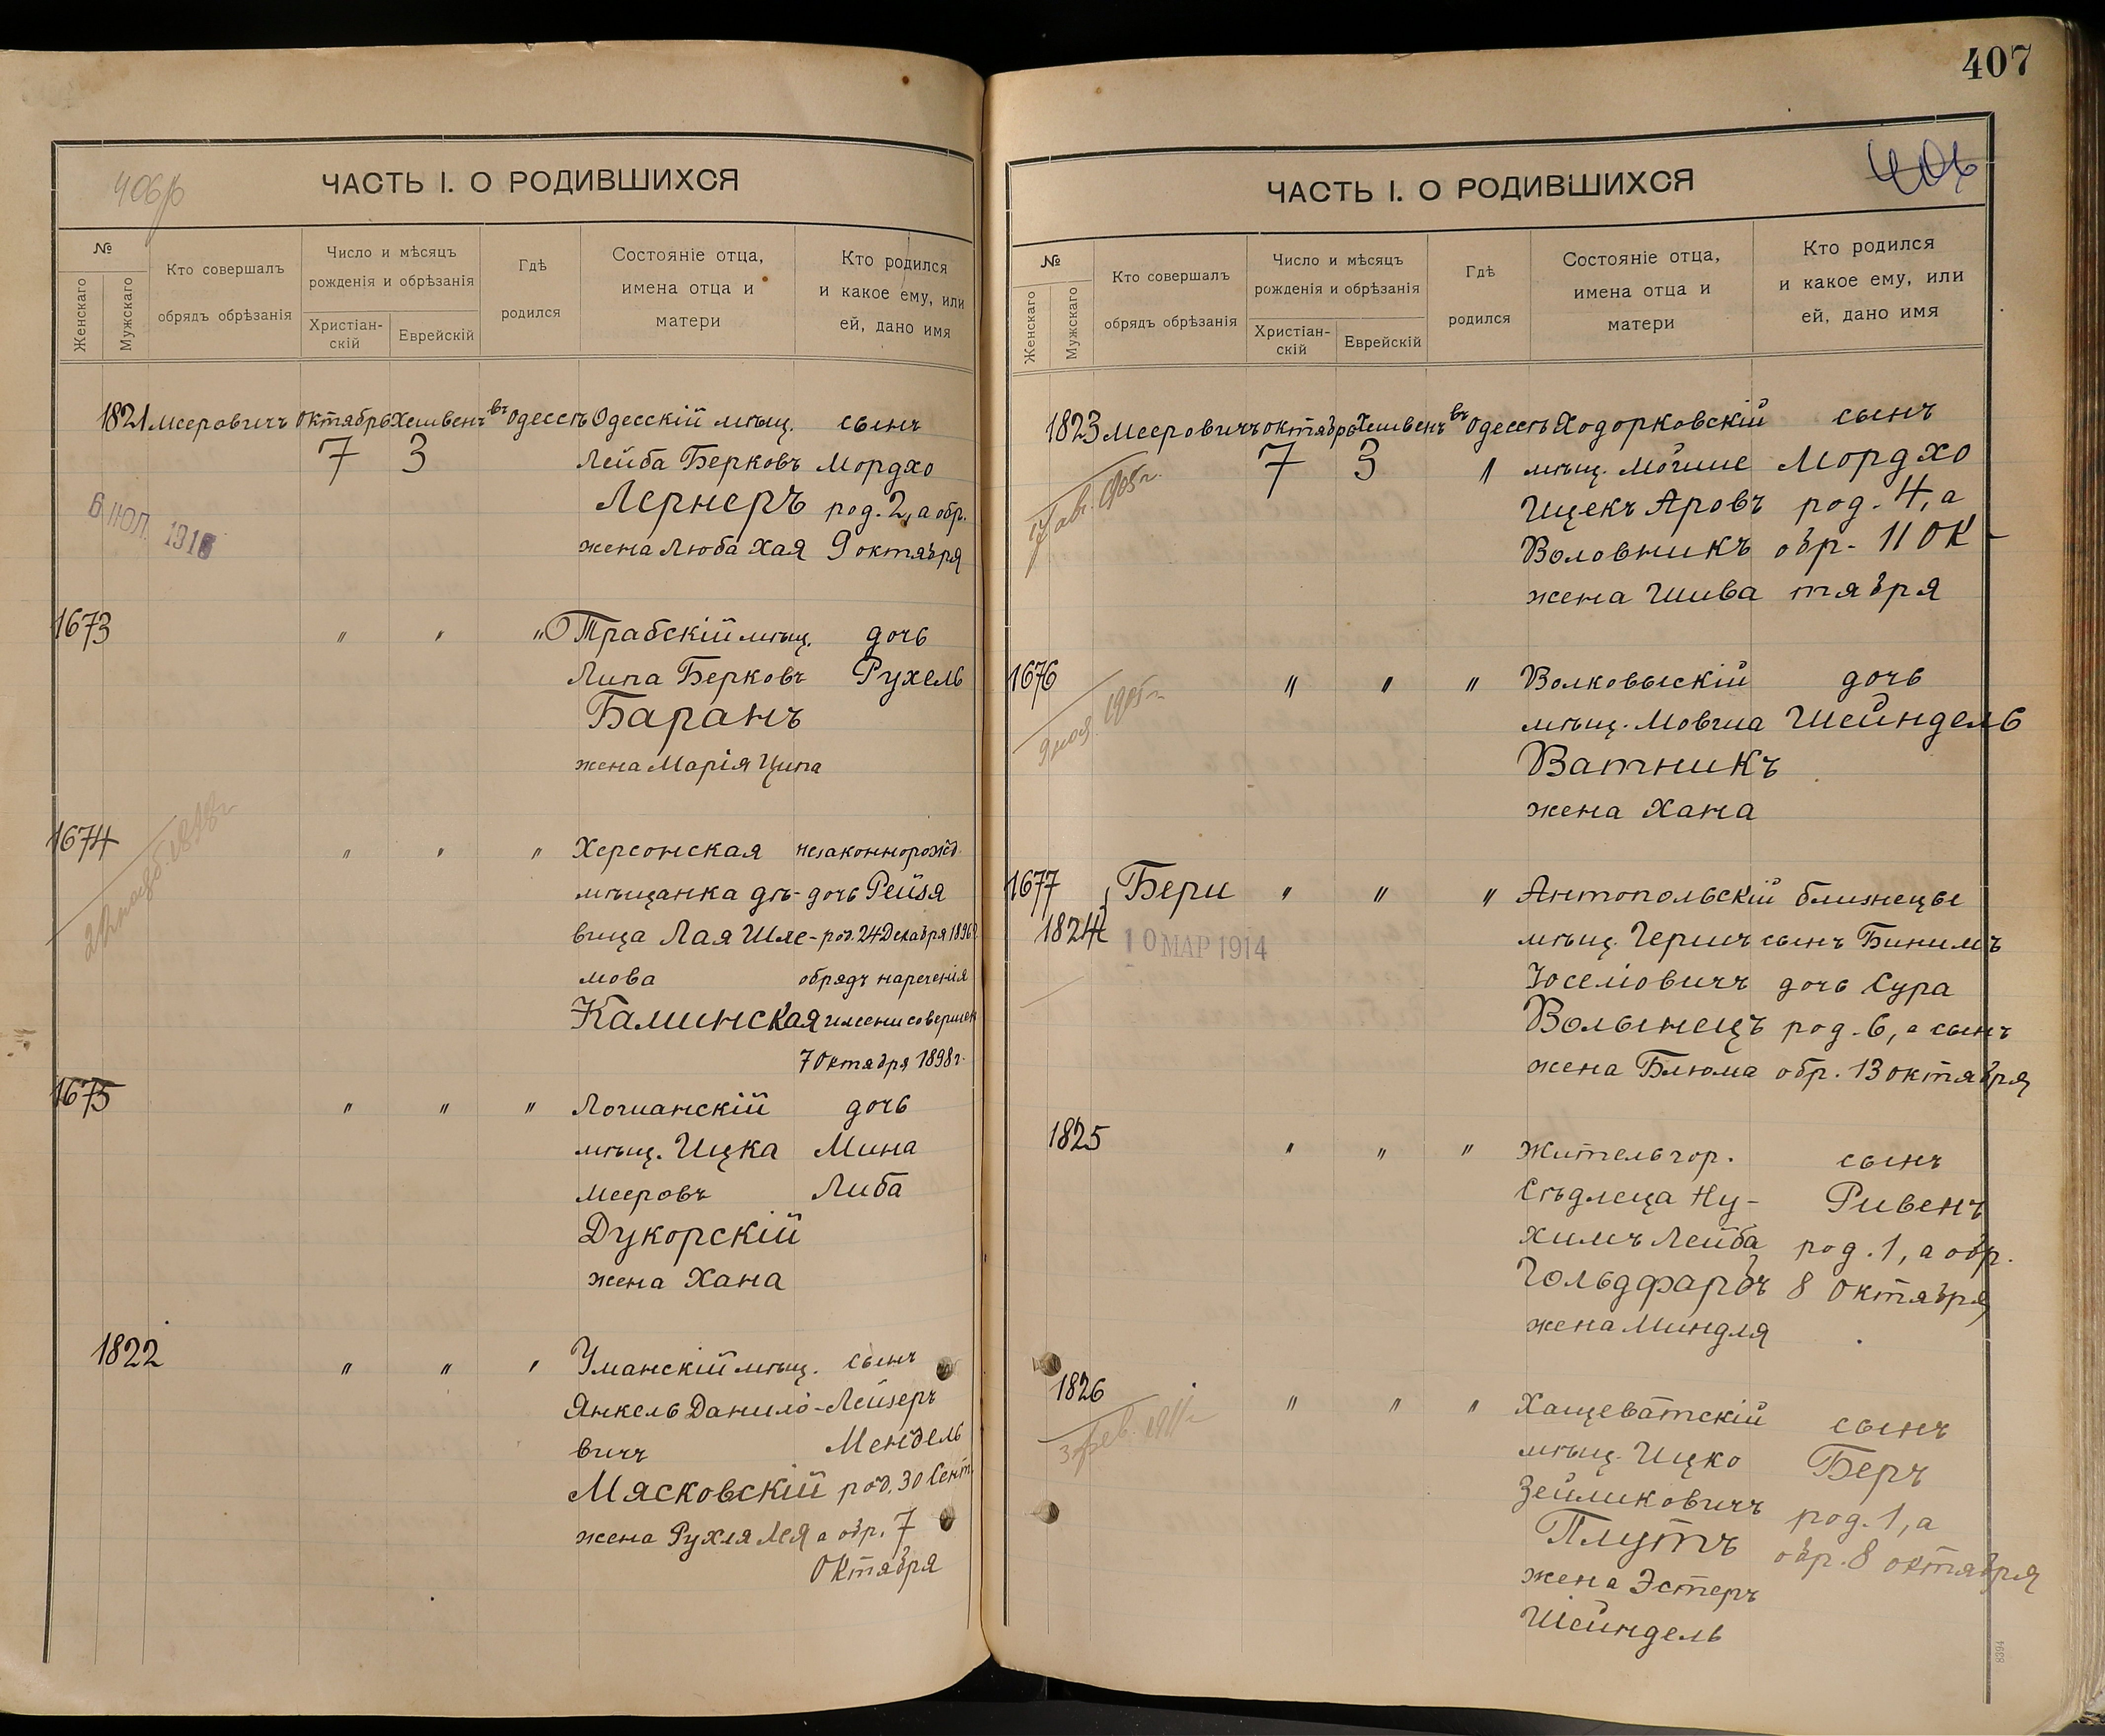 406/б
ЧАСТЬ I. О РОДИВШИХСЯ
№
Женскаго
Мужскаго
Кто совершалъ
обрядъ обрѣзанія
Число и мѣсяцъ
рожденія и обрѣзанія
Христіан-
скій
Еврейскій
Гдѣ
родился
Состояніе отца,
имена отца и
матери
Кто родился
и какое ему, или
ей, дано имя
1821 Мееровичъ Октябрь Хешвенъ въ Одессѣ Одесскій мѣщ. сынъ
7 3 Лейба Берковъ Мордхо
Лернеръ род. 2, а обр.
жена Люба Хая 9 октября
6 ИЮЛ. 1916
1673 " " " Трабскій мѣщ. дочь
Липа Берковъ Рухель
Баранъ
жена Марія Ципа
1674 " " " Херсонская незаконнорожд.
мѣщанка дѣ- дочь Рейзя
вица Лая Шле- род. 24 Декабря 1896 г.
мова обрядъ нареченія
Каминская имени совершен
7 Октября 1898 г.
1898 г.
1675 " " " Логшанскій дочь
мѣщ. Ицка Мина
Мееровъ Либа
Дукорскій
жена Хана
1822 " " " Уманскій мѣщ. сынъ
Янкель Данило- Лейзеръ
вичъ Мендель
Мясковскій род. 30 Сент.
жена Рухля Лея а обр. 7
Октября
407
406
ЧАСТЬ I. О РОДИВШИХСЯ
№
Женскаго
Мужскаго
Кто совершалъ
обрядъ обрѣзанія
Число и мѣсяцъ
рожденія и обрѣзанія
Христіан-
скій
Еврейскій
Гдѣ
родился
Состояніе отца,
имена отца и
матери
Кто родился
и какое ему, или
ей, дано имя
1823 Мееровичъ октябрь Хешвенъ въ Одессѣ Ходорковскій сынъ
7 3 " мѣщ. Мошше Мордхо
Ицекъ Аровъ род. 4, а
Воловникъ обр. 11 ок-
жена Шива тября
авг. 1905 г.
1676 " " " Волковыскій дочь
мѣщ. Мовша Шейндель
Ватникъ
жена Хана
9 ноя. 1905 г.
1677 Бери " " " Антопольскій близнецы
1824 мѣщ. Гершъ сынъ Бинимъ
10 МАР 1914
Іоселіовичъ дочь Сура
Волынецъ род. 6, а сынъ
жена Блюма обр. 13 октября
1825 " " " Житель гор. сынъ
Сѣдлеца Ну- Ривенъ
химъ Лейба род. 1, а обр.
Гольдфарбъ 8 Октября
жена Миндля
1826 " " " Хащеватскій сынъ
мѣщ. Ицко Беръ
Зейликовичъ род. 1, а
Плутъ обр. 8 октября
жена Эстеръ
Шейндель
3 фев. 1911 г.
8394